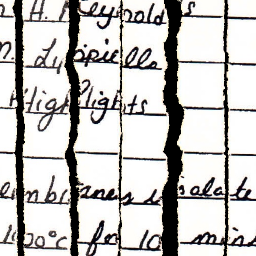 H. Reynolds
Highlights
embranes isolate
100°c for 10 mins